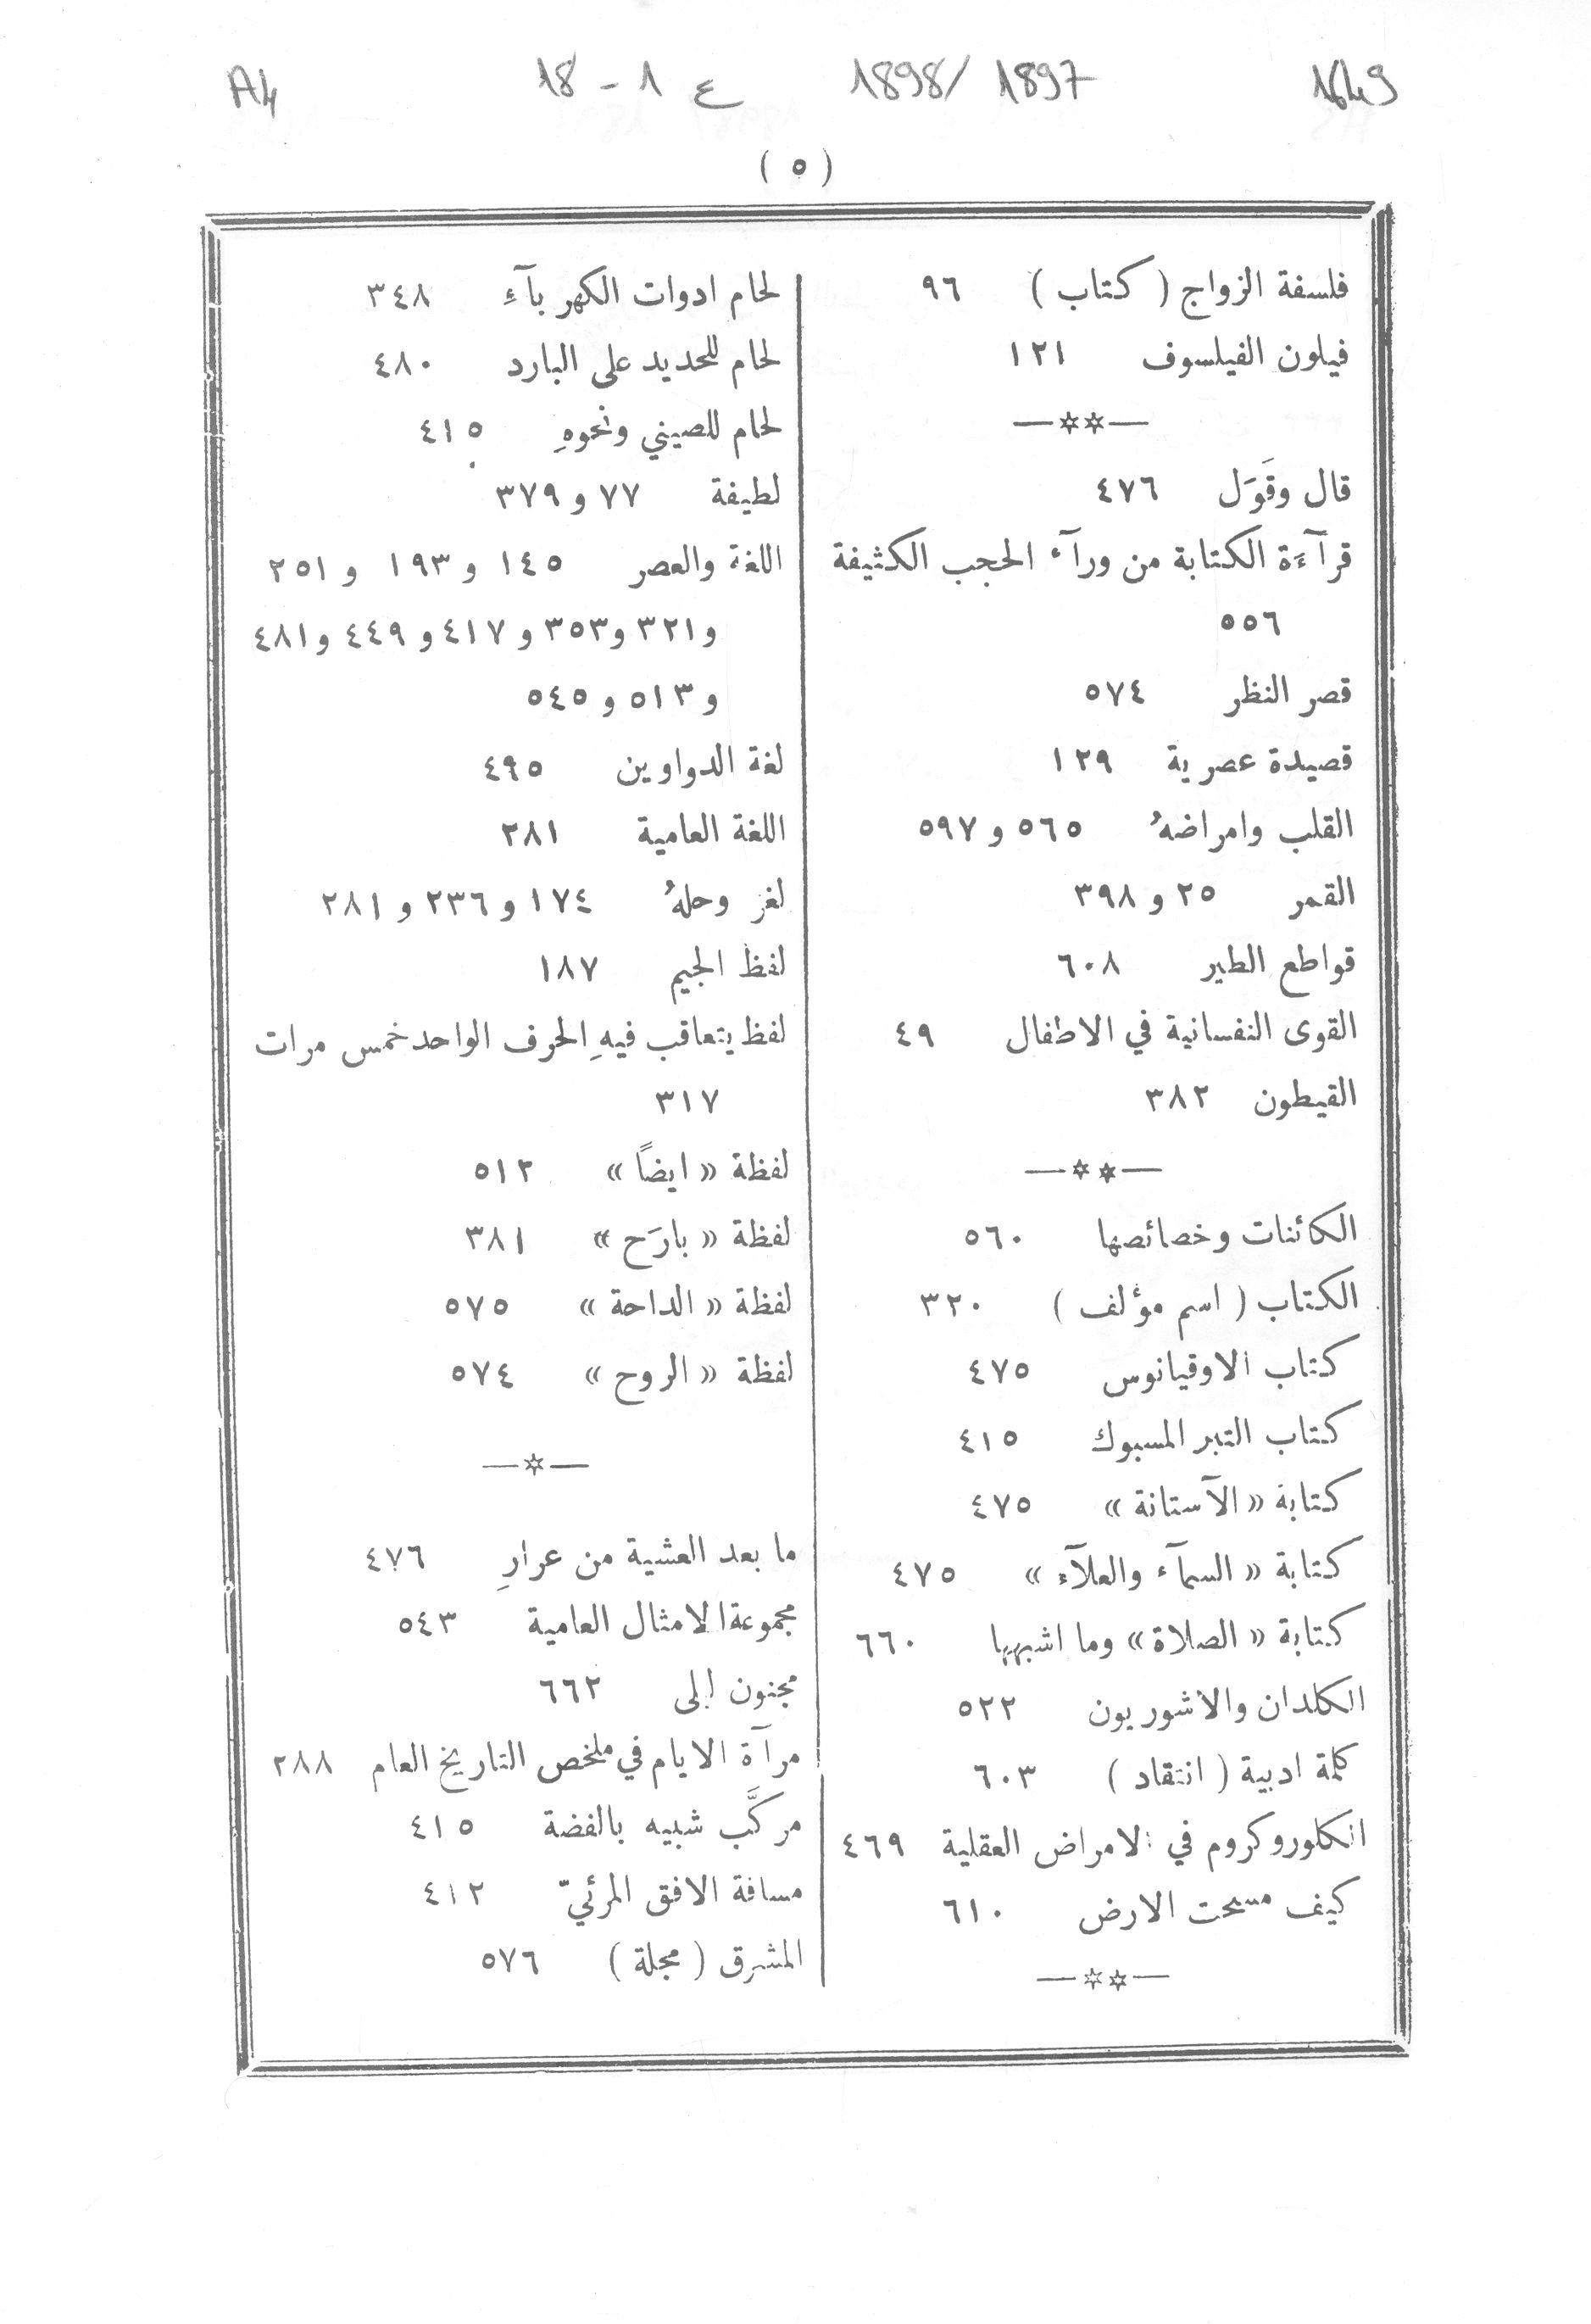 1649 1898/1897 ع 1 - 18 A4
( ٥ )
فلسفة الزواج ( كتاب ) ٩٦
فيلون الفيلسوف ١٢١
—**—
قال وقَوَل ٤٧٦
قرآءَة الكتابة من ورآء الحجب الكثيفة
٥٥٦
قصر النظر ٥٧٤
قصيدة عصرية ١٢٩
القلب وامراضهُ ٥٦٥ و ٥٩٧
القمر ٢٥ و ٣٩٨
قواطع الطير ٦٠٨
القوى النفسانية في الاطفال ٤٩
القيطون ٣٨٢
—**—
الكائنات وخصائصها ٥٦٠
الكتاب ( اسم مؤلف ) ٣٢٠
كتاب الاوقيانوس ٤٧٥
كتاب التبر المسبوك ٤١٥
كتابة « الآستانة » ٤٧٥
كتابة « السمآء والعلآء » ٤٧٥
كتابة « الصلاة » وما اشبهها ٦٦٠
الكلدان والاشوريون ٥٢٢
كلمة ادبية ( انتقاد ) ٦٠٣
الكلوروكروم في الامراض العقلية ٤٦٩
كيف مسحت الارض ٦١٠
—**—
لحام ادوات الكهربآءِ ٣٤٨
لحام للحديد على البارد ٤٨٠
لحام للصيني ونحوهِ ٤١٥
لطيفة ٧٧ و ٣٧٩
اللغة والعصر ١٤٥ و ١٩٣ و ٢٥١
و ٣٢١ و ٣٥٣ و ٤١٧ و ٤٤٩ و ٤٨١
و ٥١٣ و ٥٤٥
لغة الدواوين ٤٩٥
اللغة العامية ٢٨١
لغز وحلهُ ١٧٤ و ٢٣٦ و ٢٨١
لفظ الجيم ١٨٧
لفظ يتعاقب فيهِ الحرف الواحد خمس مرات
٣١٧
لفظة « ايضاً » ٥١٢
لفظة « بارَح » ٣٨١
لفظة « الداحة » ٥٧٥
لفظة « الروح » ٥٧٤
—*—
ما بعد العشية من عرارِ ٤٧٦
مجموعة الامثال العامية ٥٤٣
مجنون ليلى ٦٦٢
مرآة الايام في ملخص التاريخ العام ٢٨٨
مركَّب شبيه بالفضة ٤١٥
مسافة الافق المرئيّ ٤١٢
المشرق ( مجلة ) ٥٧٦